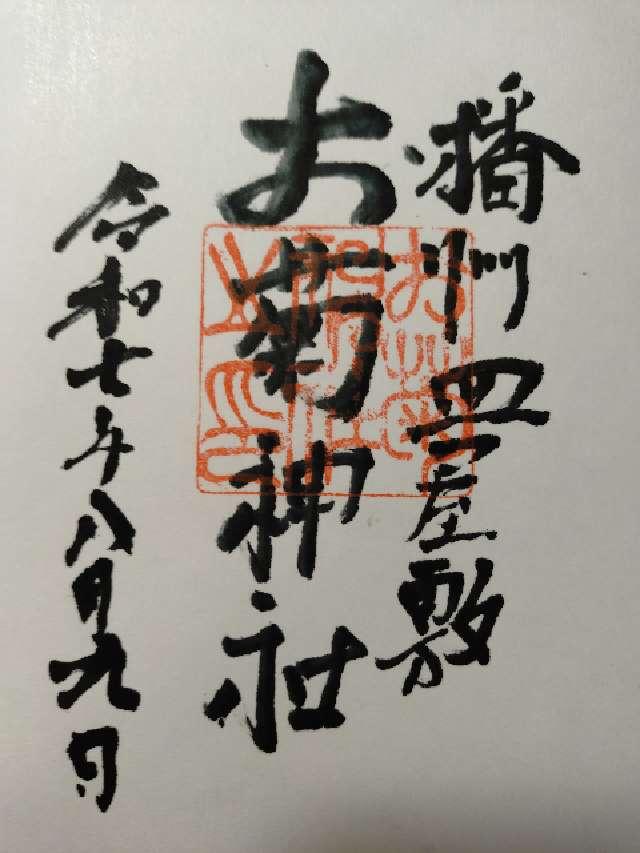 播州皿屋敷
お菊神社
令和七年八月九日